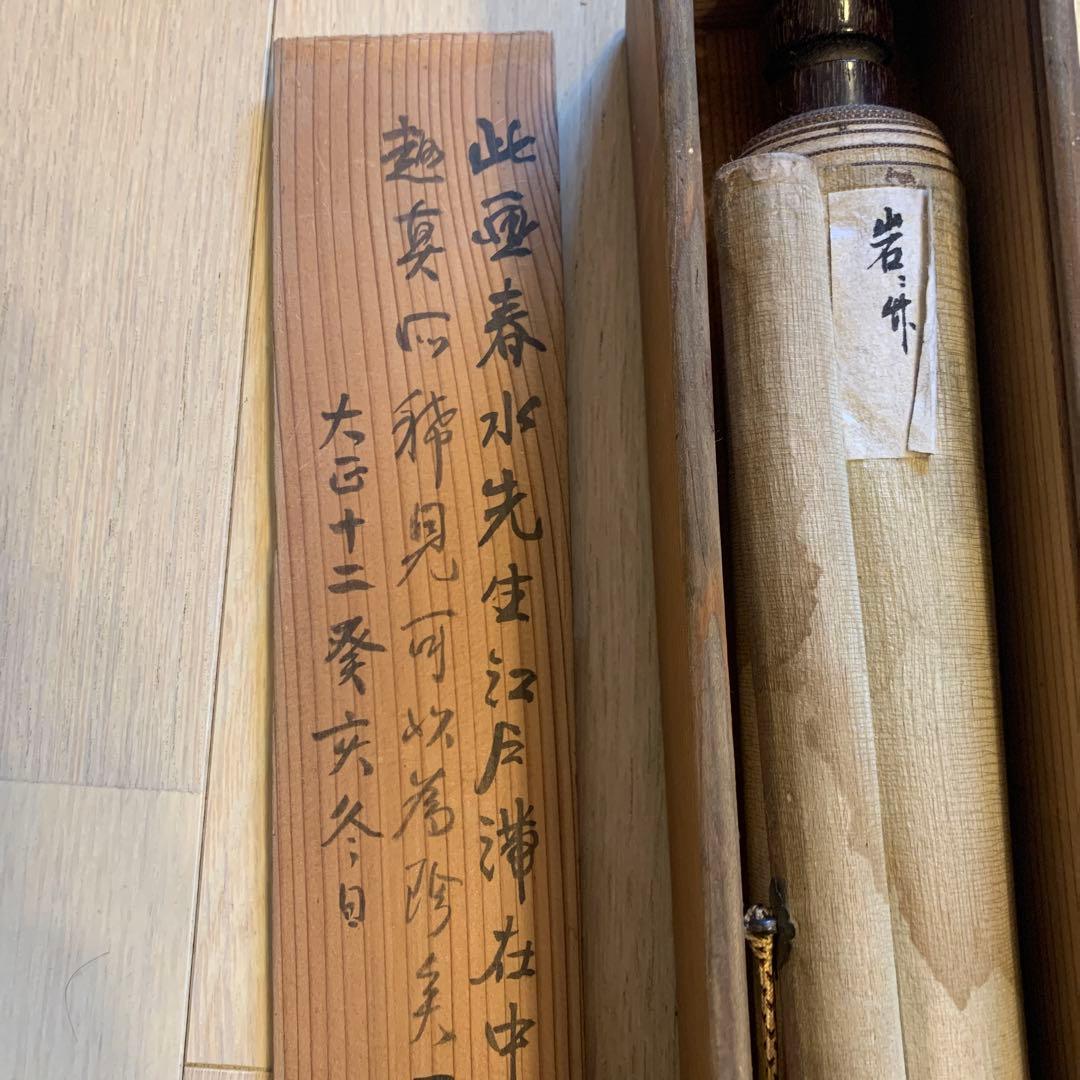 此画春水先生江戸滞在中
趣真所稀見可以為珍矣
大正十二癸亥冬日
岩ニ竹